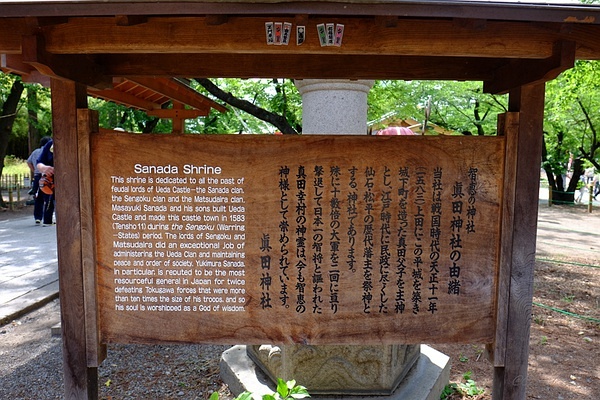 Sanada Shrine
This shrine is dedicated to all the past of
feudal lords of Ueda Castle—the Sanada clan,
the Sengoku clan and the Matsudaira clan.
Masayuki Sanada and his sons built Ueda
Castle and made this castle town in 1583
(Tensho 11) during the Sengoku (Warring
-States) period. The lords of Sengoku and
Matsudaira did an exceptional Job of
administering the Ueda Clan and maintaining
peace and order of society. Yukimura Sanada
in particular, is reputed to be the most
resourceful general in Japan for twice
defeating Tokugawa forces that were more
than ten times the size of his troops, and so
his soul is worshipped as a God of wisdom.
智恵の神社
眞田神社の由緒
当社は戦国時代の天正十一年
(一五八三)上田にこの平城を築き
城下町を造った真田父子を主神
とし、江戸時代に民政に尽くした
仙石・松平の歴代藩主を祭神と
する、神社であります。
殊に十数倍の大軍を二回に亘り
撃退して日本一の智将と謳われた
真田幸村の神霊は、今も智恵の
神様として崇められています。
眞田神社